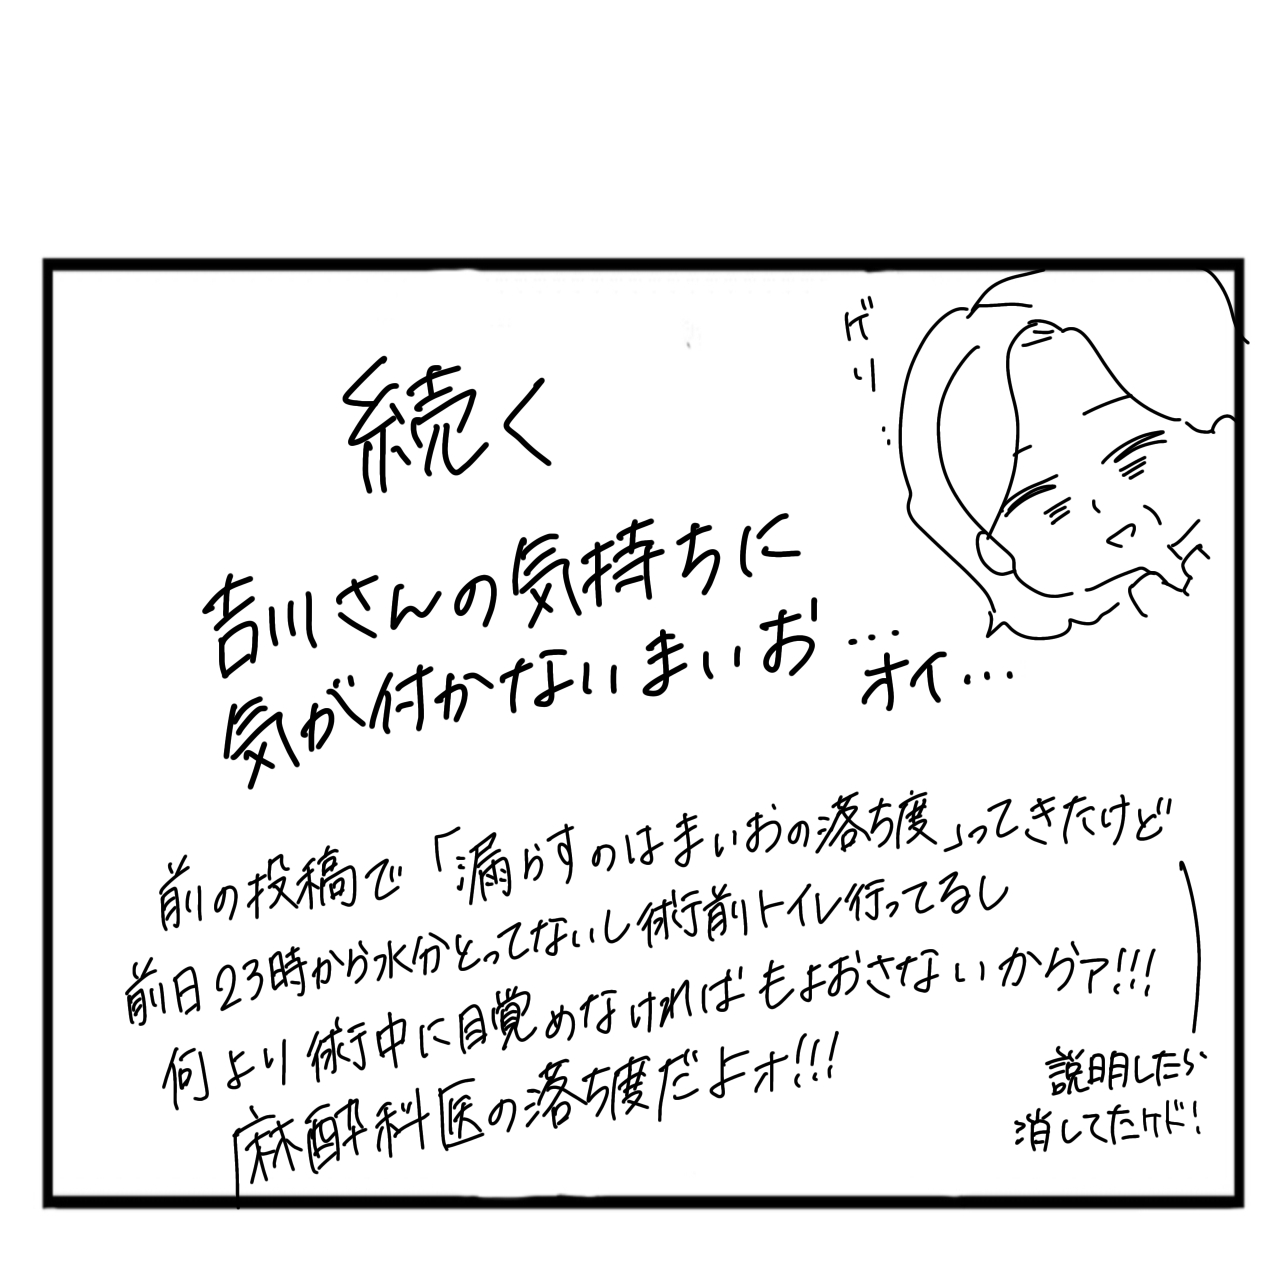 ゲリ…
続く
吉川さんの気持ちに
気が付かないまいお…
オイ…
前の投稿で「漏らすのはまいおの落ち度」ってきたけど
前日23時から水分とってないし術前トイレ行ってるし
何より術中に目覚めなければもよおさないからァ!!!
麻酔科医の落ち度だよォ!!!
説明したら
消してたケド!